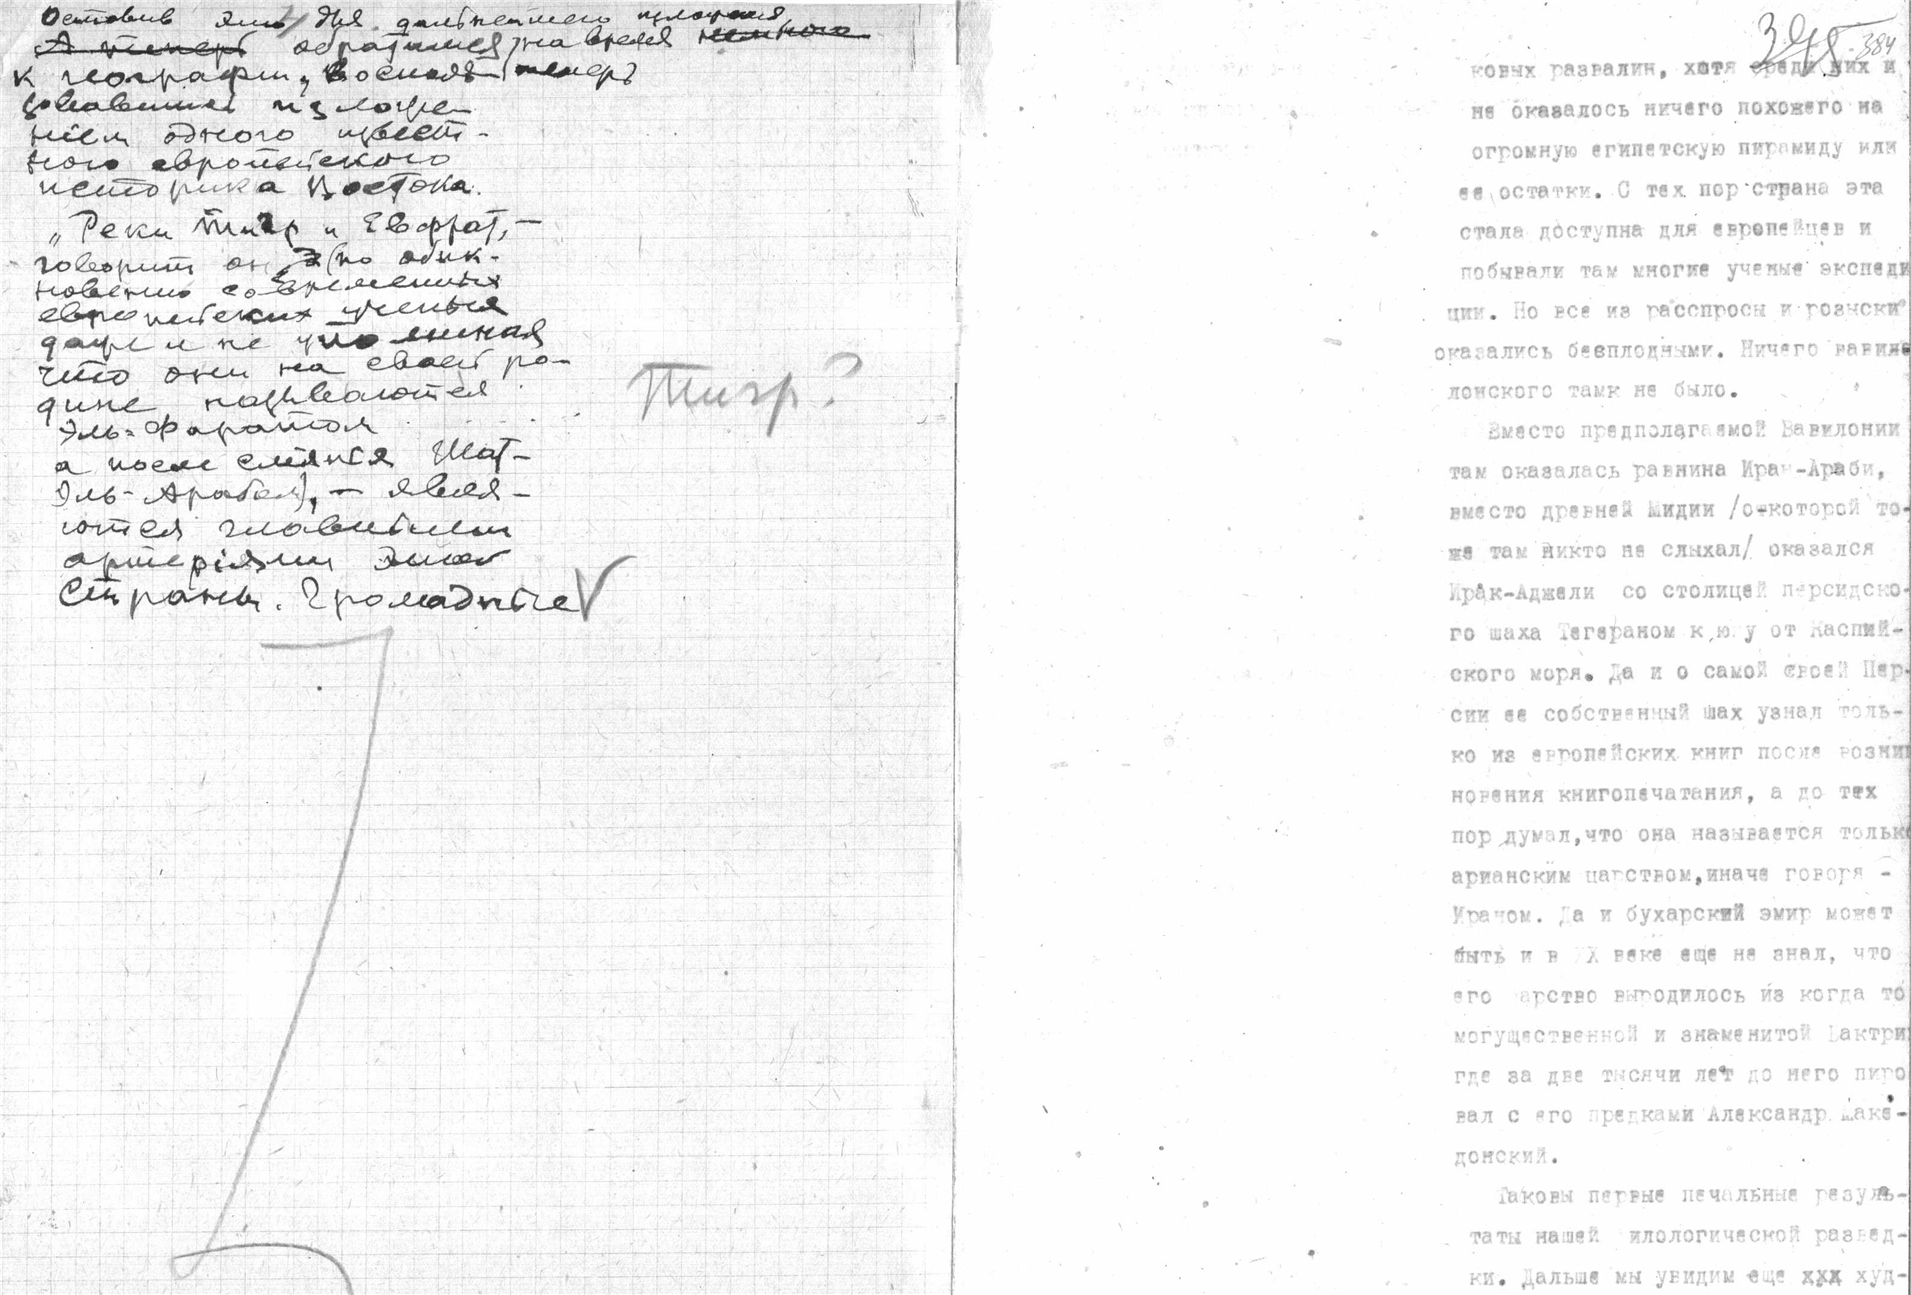 Оставив это для дальнейшего
А теперь обратимся на время немного
к географии, воспользо-
вавшись изложе-
нием одного извест-
ного европейского
историка Востока.
„Реки Тигр и Евфрат, —
говорит он (по обык-
новению современных
европейских ученых
даже и не упоминая
что они на своей ро-
дине называются
Эль-Фаратом
а после слияния Шат-
Эль-Арабом), — явля-
ются главными
артериями этой
страны. Громадные
Тигр?
384
ковых развалин, хотя среди них и
не оказалось ничего похожего на
огромную египетскую пирамиду или
ее остатки. С тех пор страна эта
стала доступна для европейцев и
побывали там многие ученые экспеди
ции. Но все из расспросы и розыски
оказались бесплодными. Ничего вавило
лонского тамк не было.
Вместо предполагаемой Вавилонии
там оказалась равнина Иран-Араби,
вместо древней Мидии /о которой то-
же там никто не слыхал/ оказался
Ирак-Аджели со столицей персидско-
го шаха Тегераном к югу от Каспий-
ского моря. Да и о самой своей Пер-
сии ее собственный шах узнал толь-
ко из европейских книг после возник
новения книгопечатания, а до тех
пор думал, что она называется только
арианским царством, иначе говоря -
Ираном. Да и бухарский эмир может
быть и в XX веке еще не знал, что
его царство выродилось из когда то
могущественной и знаменитой Бактри
где за две тысячи лет до него пиро
вал с его предками Александр Маке-
донский.
Таковы первые печальные резуль-
таты нашей илологической развед-
ки. Дальше мы увидим еще ххх худ-